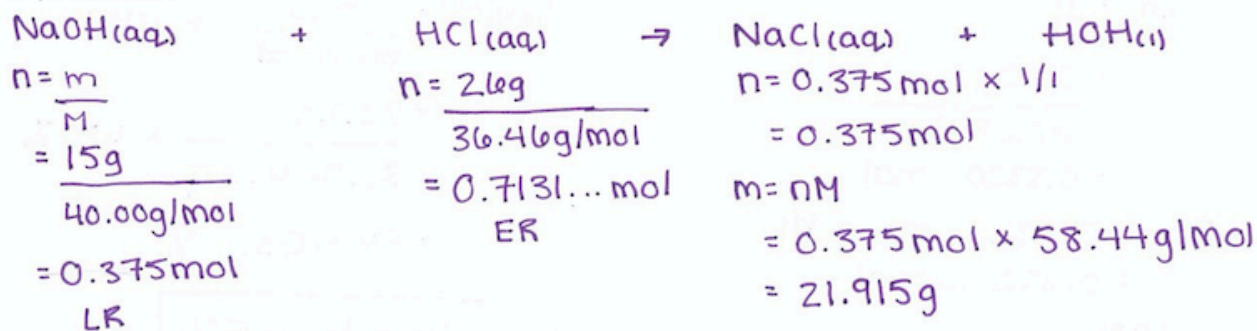 NaOH(aq) + HCl(aq) → NaCl(aq) + HOH(l)
n = m
M
= 15g
40.00g/mol
= 0.375mol
LR
n = 26g
36.46g/mol
= 0.7131... mol
ER
n = 0.375mol × 1/1
= 0.375mol
m = nM
= 0.375mol × 58.44g/mol
= 21.915g